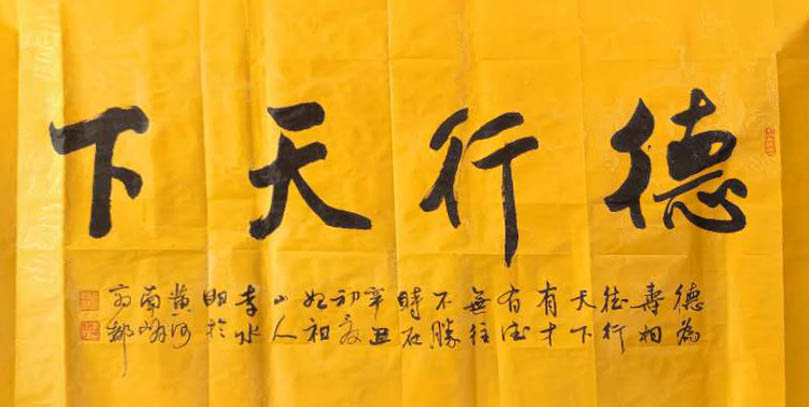 德行天下
德為
壽相
德行
天下
有才
有德
無往
不勝
時在
辛丑
初夏
山人
李水
明於
黃河
南岸